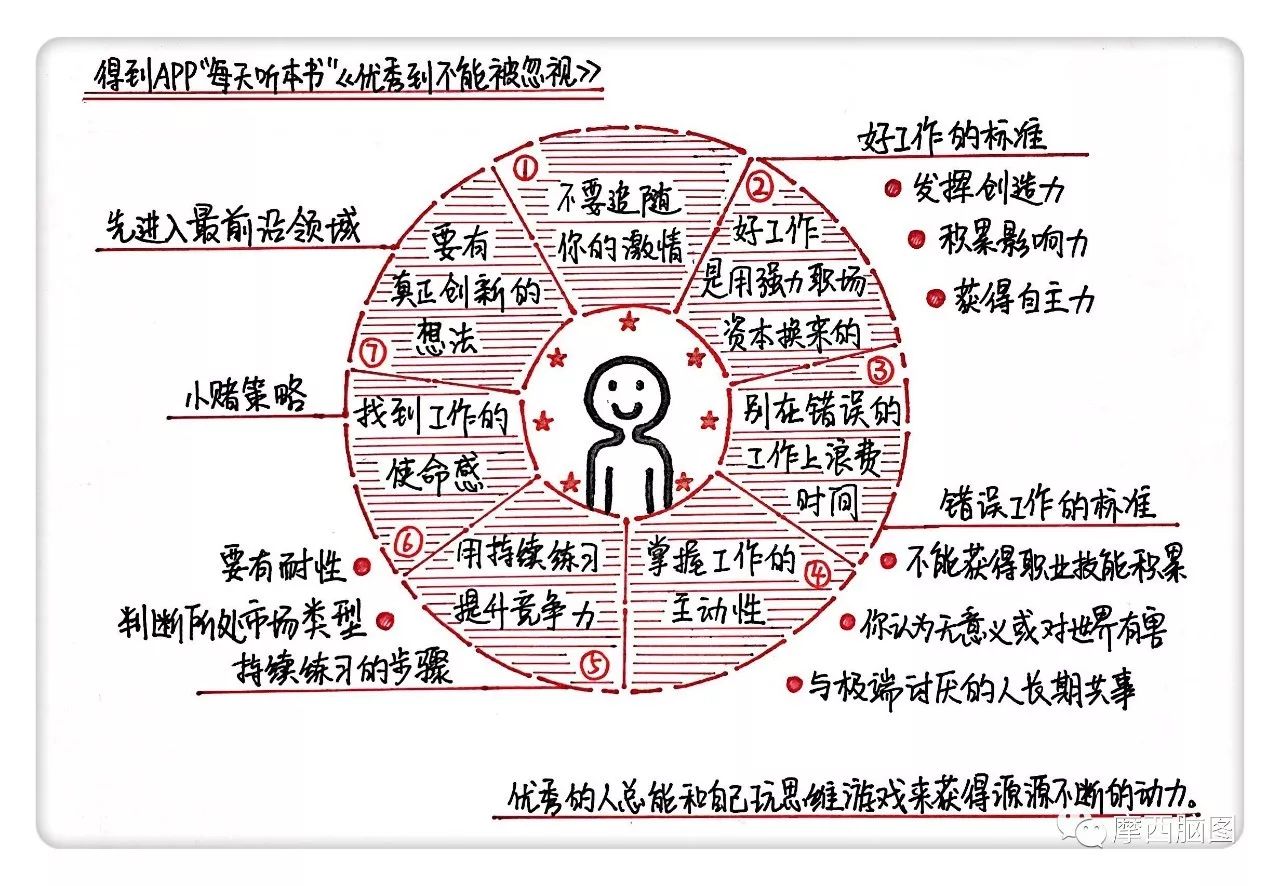 得到APP“每天听本书”《优秀到不能被忽视》
①
不要追随
你的激情
②
好工作
是用强力职场
资本换来的
好工作的标准
发挥创造力
积累影响力
获得自主力
③
别在错误的
工作上浪费
时间
错误工作的标准
不能获得职业技能积累
你认为无意义或对世界有害
与极端讨厌的人长期共事
④
掌握工作的
主动性
⑤
用持续练习
提升竞争力
持续练习的步骤
判断所处市场类型
要有耐性
⑥
找到工作的
使命感
小赌策略
⑦
要有
真正创新的
想法
先进入最前沿领域
优秀的人总能和自己玩思维游戏来获得源源不断的动力。
摩西脑图